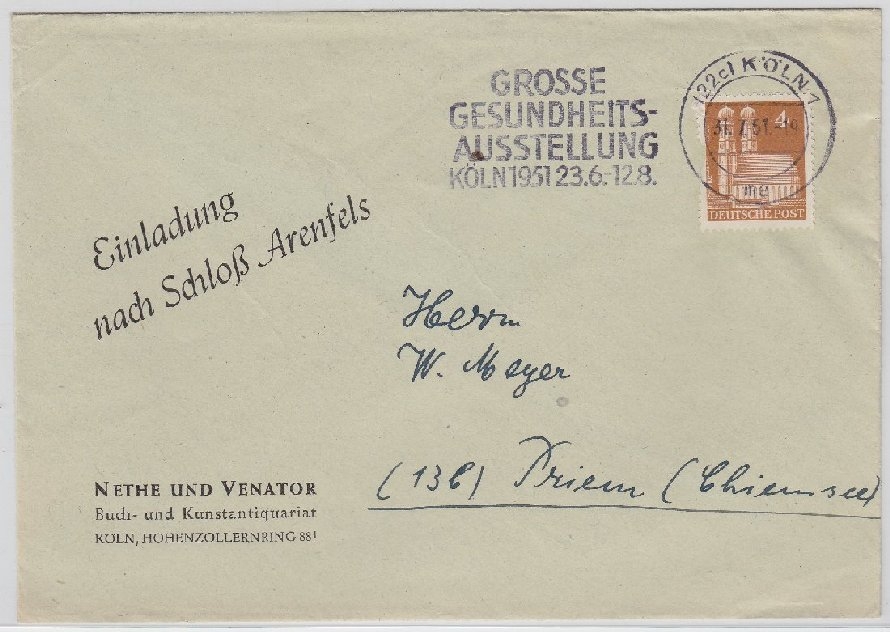 GROSSE
GESUNDHEITS-
AUSSTELLUNG
KÖLN 1951 23.6.-12.8.
(22c) KÖLN 1
31.7.51.
me
4
DEUTSCHE POST
Einladung
nach Schloß Arenfels
Herrn
W. Meyer
(13b) Prien (Chiemsee)
NETHE UND VENATOR
Buch- und Kunstantiquariat
KÖLN, HOHENZOLLERNRING 88¹